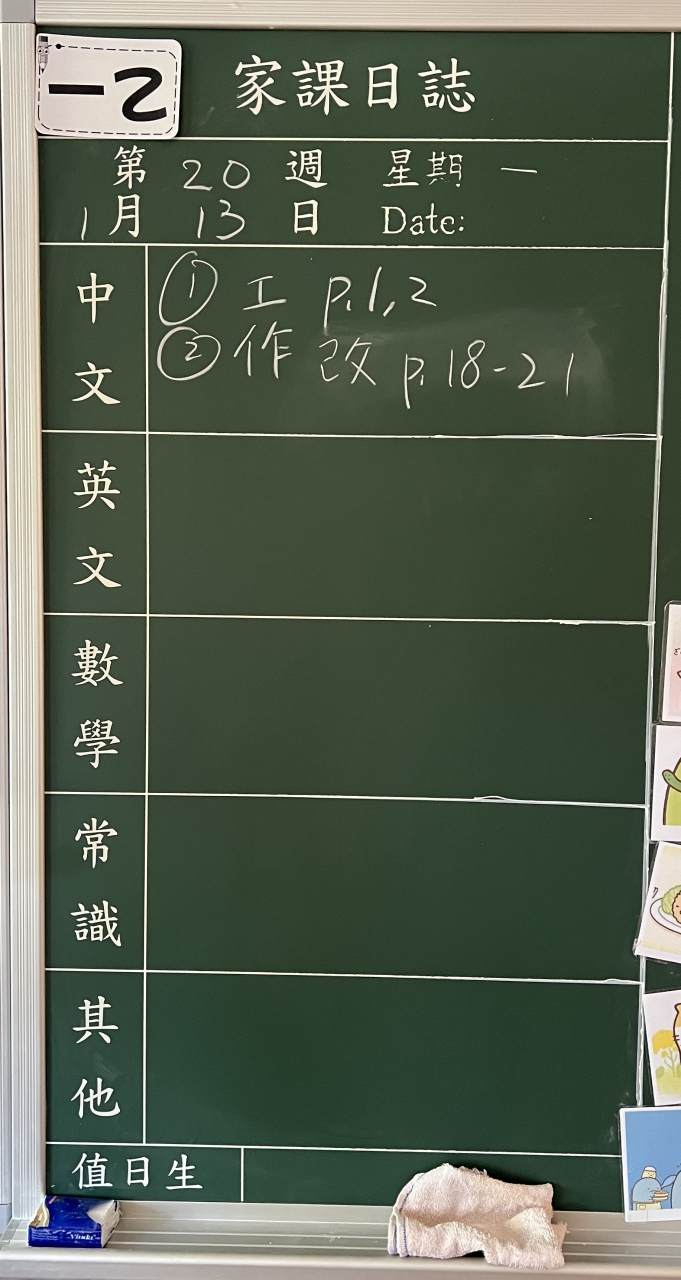 一乙
家課日誌
第 20 週 星期 一
1月 13 日 Date:
中文
① 工 p.1,2
② 作 改 p.18-21
英文
數學
常識
其他
值日生